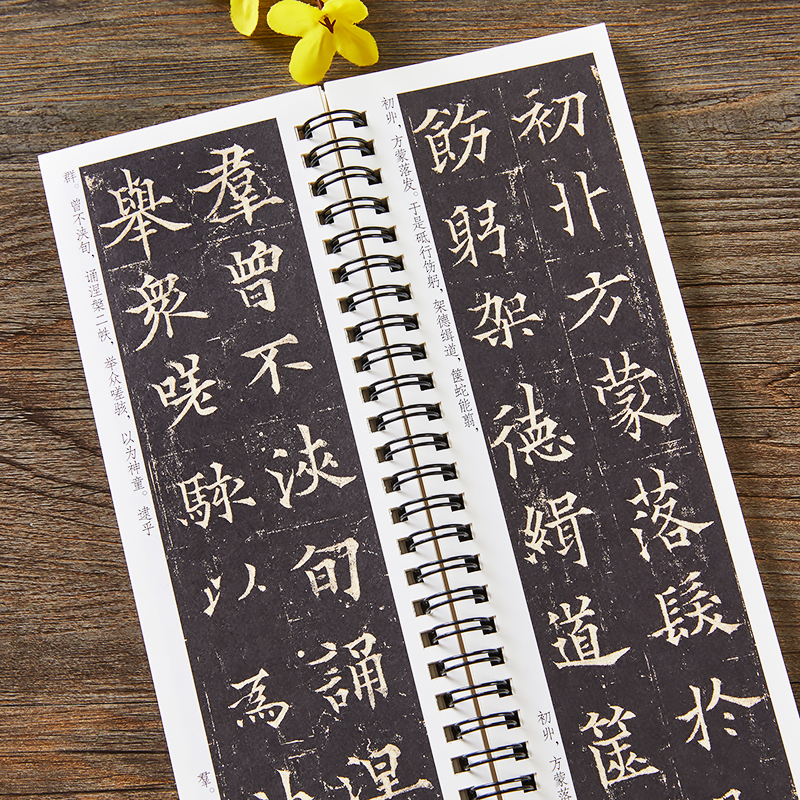 初丱方蒙落髮於
飭躬架德緝道篋
初丱，方蒙落发。于是砥行饬躬，架德缉道，箧蛇能翦，
初丱，方蒙落
羣曾不浹旬誦涅
舉衆嗟駭以為
群。曾不浃旬，诵涅槃二帙，举众嗟骇，以为神童。逮乎
羣。